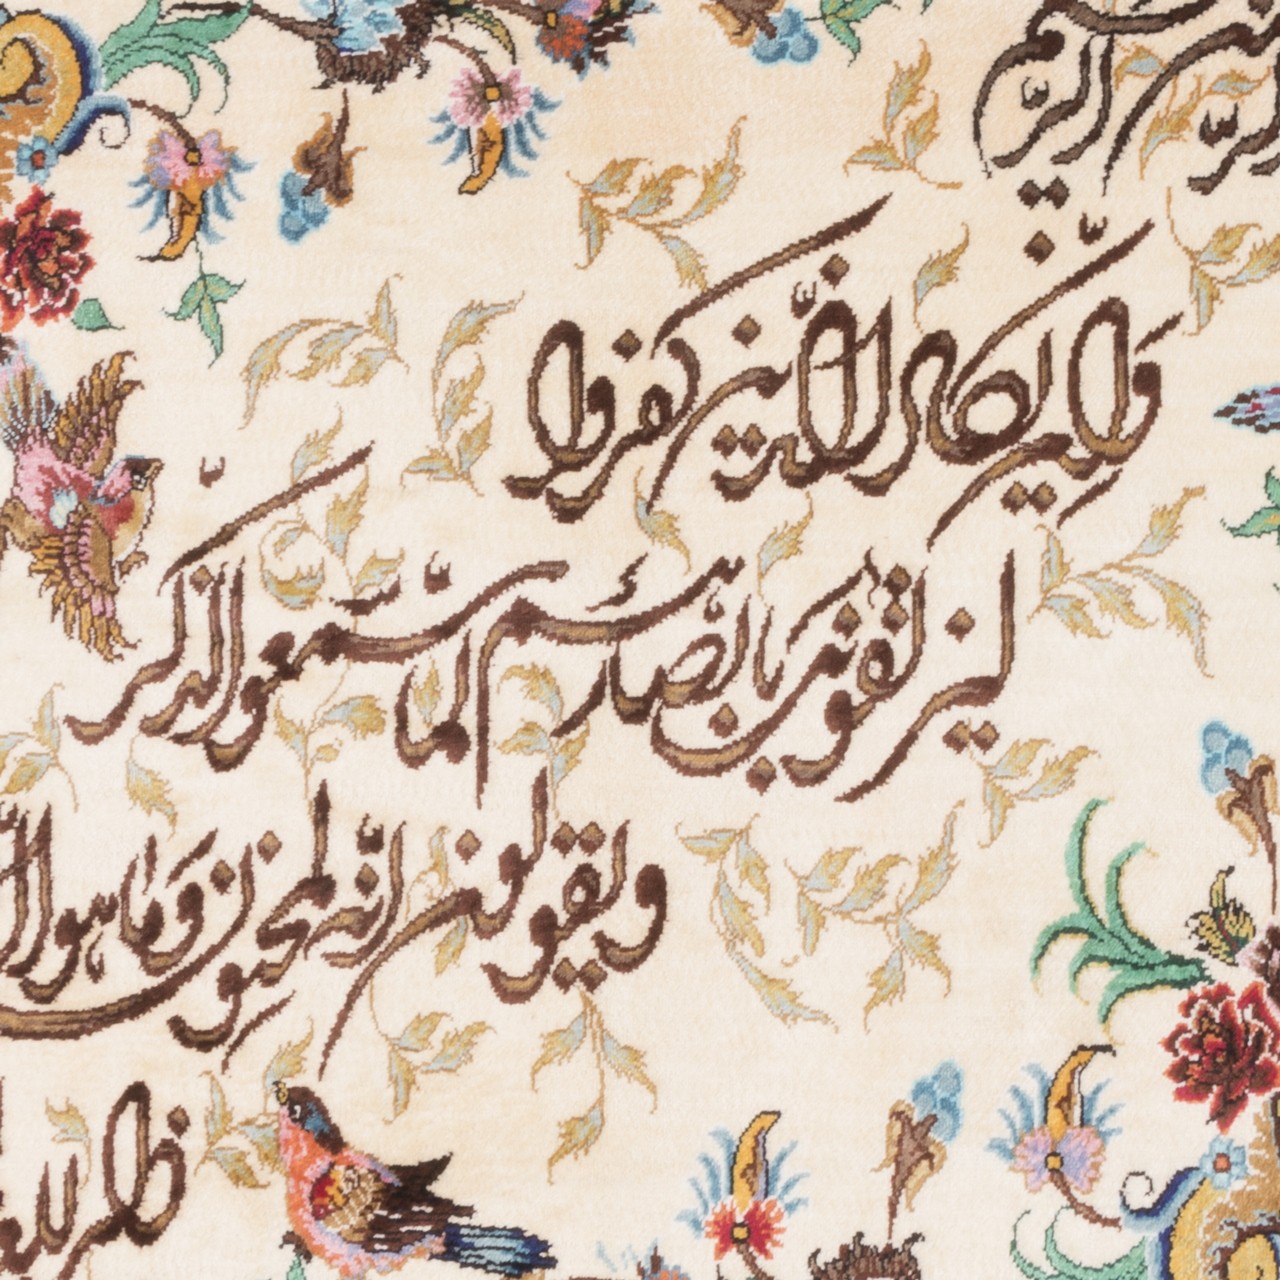 الرحيم
وان يكاد الذين كفروا
ليزلقونك بابصارهم لما سمعوا الذكر
ويقولون انه لمجنون وما هو الا
ذكر